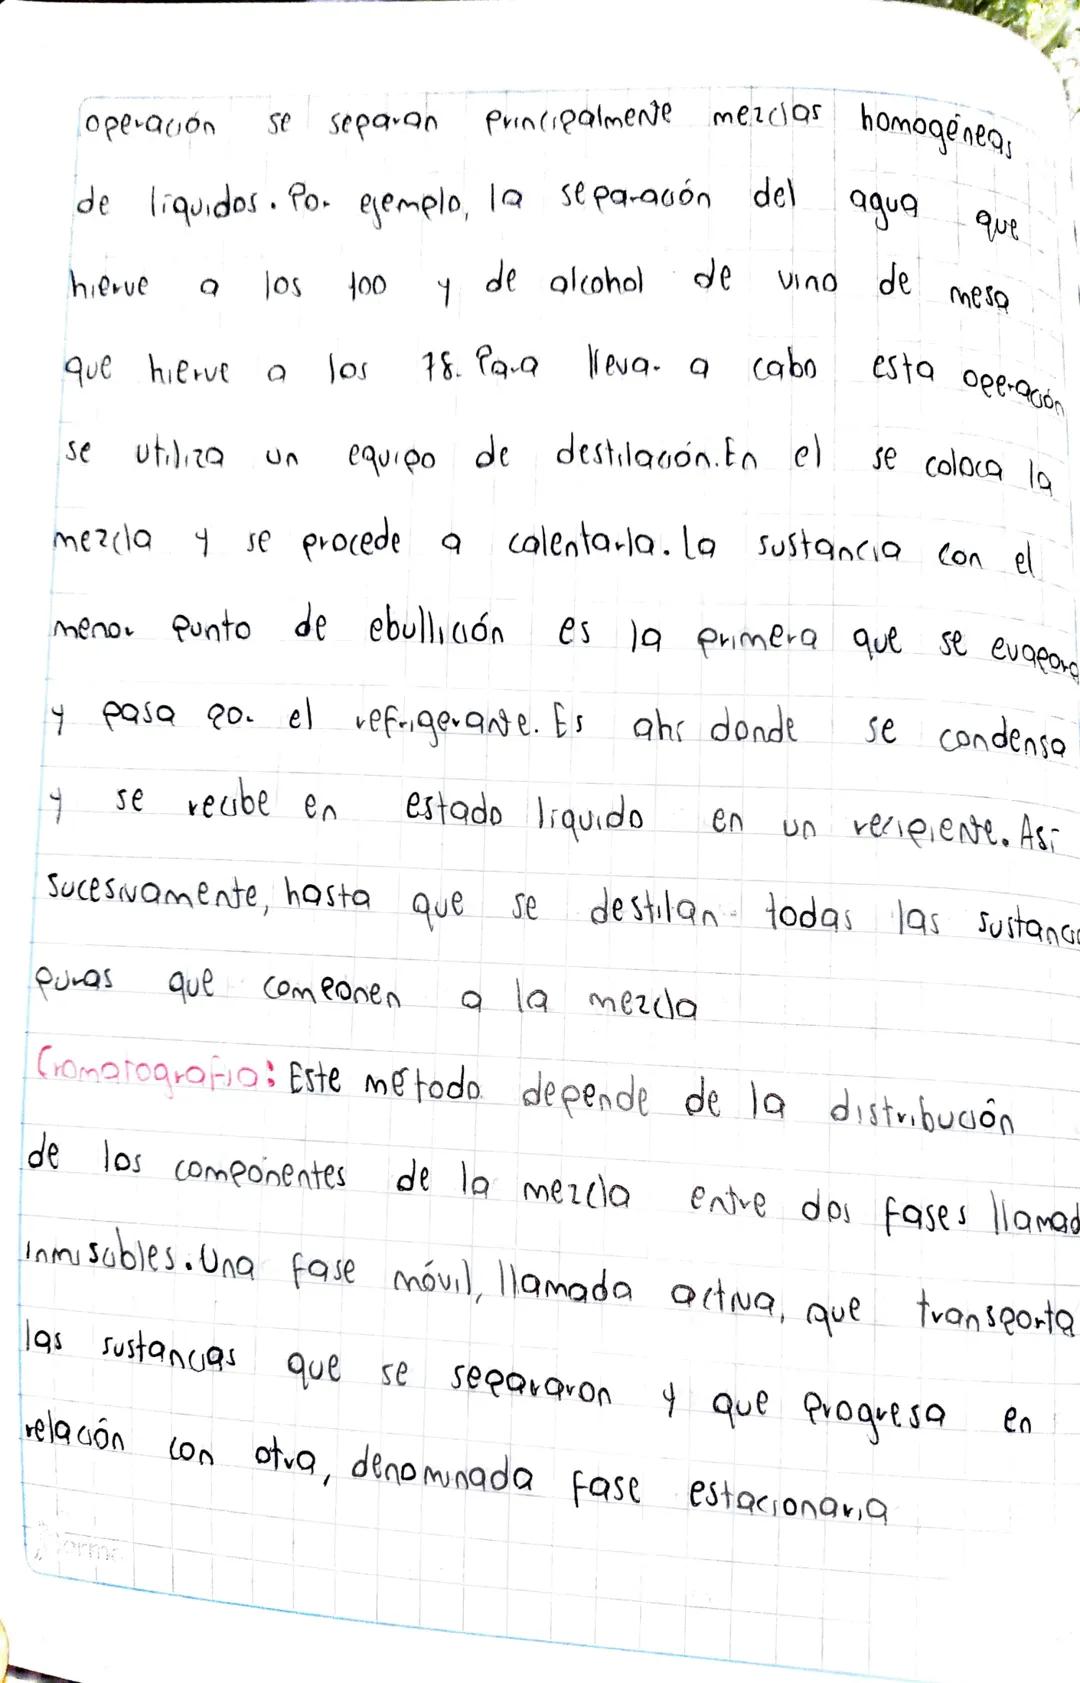 operación se separan principalmente mezclas homogéneas
de líquidos. Por ejemplo, la separación del agua que
hierve a los 100 y de alcohol de vino de mesa
que hierve a los 78. Para llevar a cabo esta operación
se utiliza un equipo de destilación. En el se coloca la
mezcla y se procede a calentarla. La sustancia con el
menor punto de ebullición es la primera que se evapora
y pasa por el refrigerante. Es ahí donde se condensa
y se recibe en estado líquido en un recipiente. Así
sucesivamente, hasta que se destilan todas las sustanci
puras que componen a la mezcla
Cromatografia: Este método depende de la distribución
de los componentes de la mezcla entre dos fases llamad
inmiscibles. Una fase móvil, llamada activa, que transporta
las sustancias que se separaron y que progresa en
relación con otra, denominada fase estacionaria